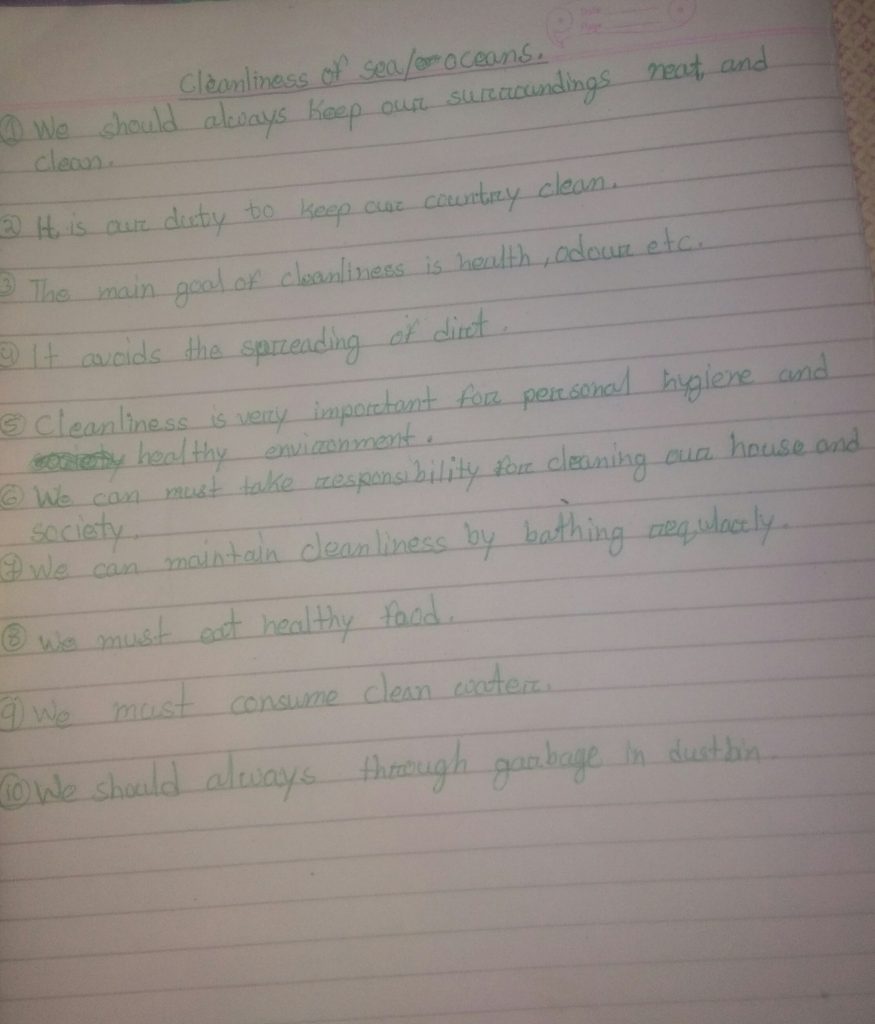 Date
Page
Cleanliness of sea/or oceans.
① We should always keep our surroundings neat and
clean.
② It is our duty to keep our country clean.
③ The main goal of cleanliness is health, odour etc.
④ It avoids the spreading of dirt.
⑤ Cleanliness is very important for personal hygiene and
society healthy environment.
⑥ We can must take responsibility for cleaning our house and
society.
⑦ We can maintain cleanliness by bathing regularly.
⑧ We must eat healthy food.
⑨ We must consume clean water.
⑩ We should always through garbage in dustbin.